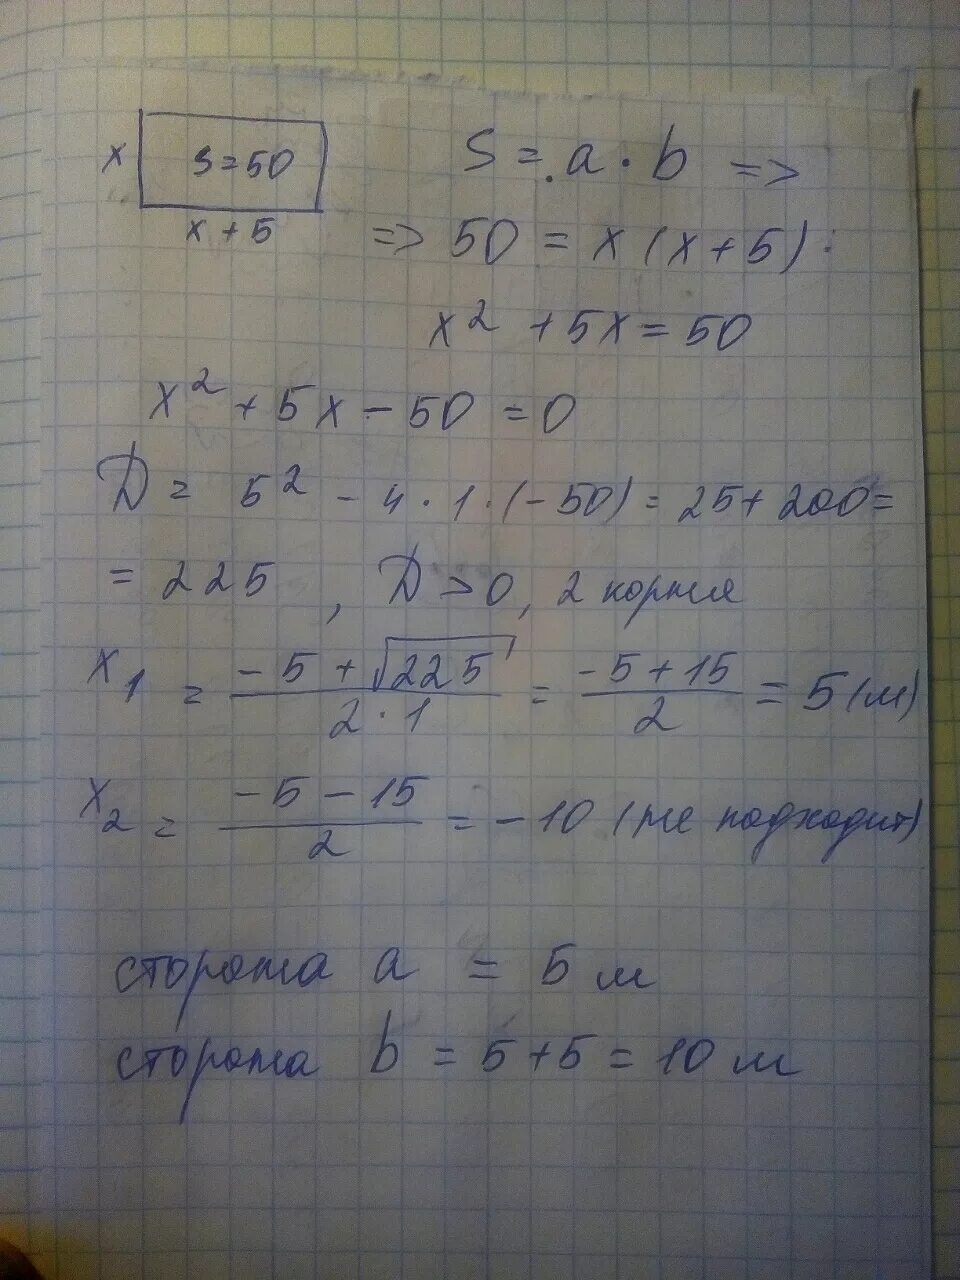 x S=50 S = a · b =>
x + 5 => 50 = x (x + 5)
x² + 5x = 50
x² + 5x - 50 = 0
D = 5² - 4 · 1 · (-50) = 25 + 200 =
= 225 , D > 0, 2 корня
x₁ = (-5 + √225)/(2 · 1) = (-5 + 15)/2 = 5 (м)
x₂ = (-5 - 15)/2 = -10 (не подходит)
сторона a = 5 м
сторона b = 5 + 5 = 10 м